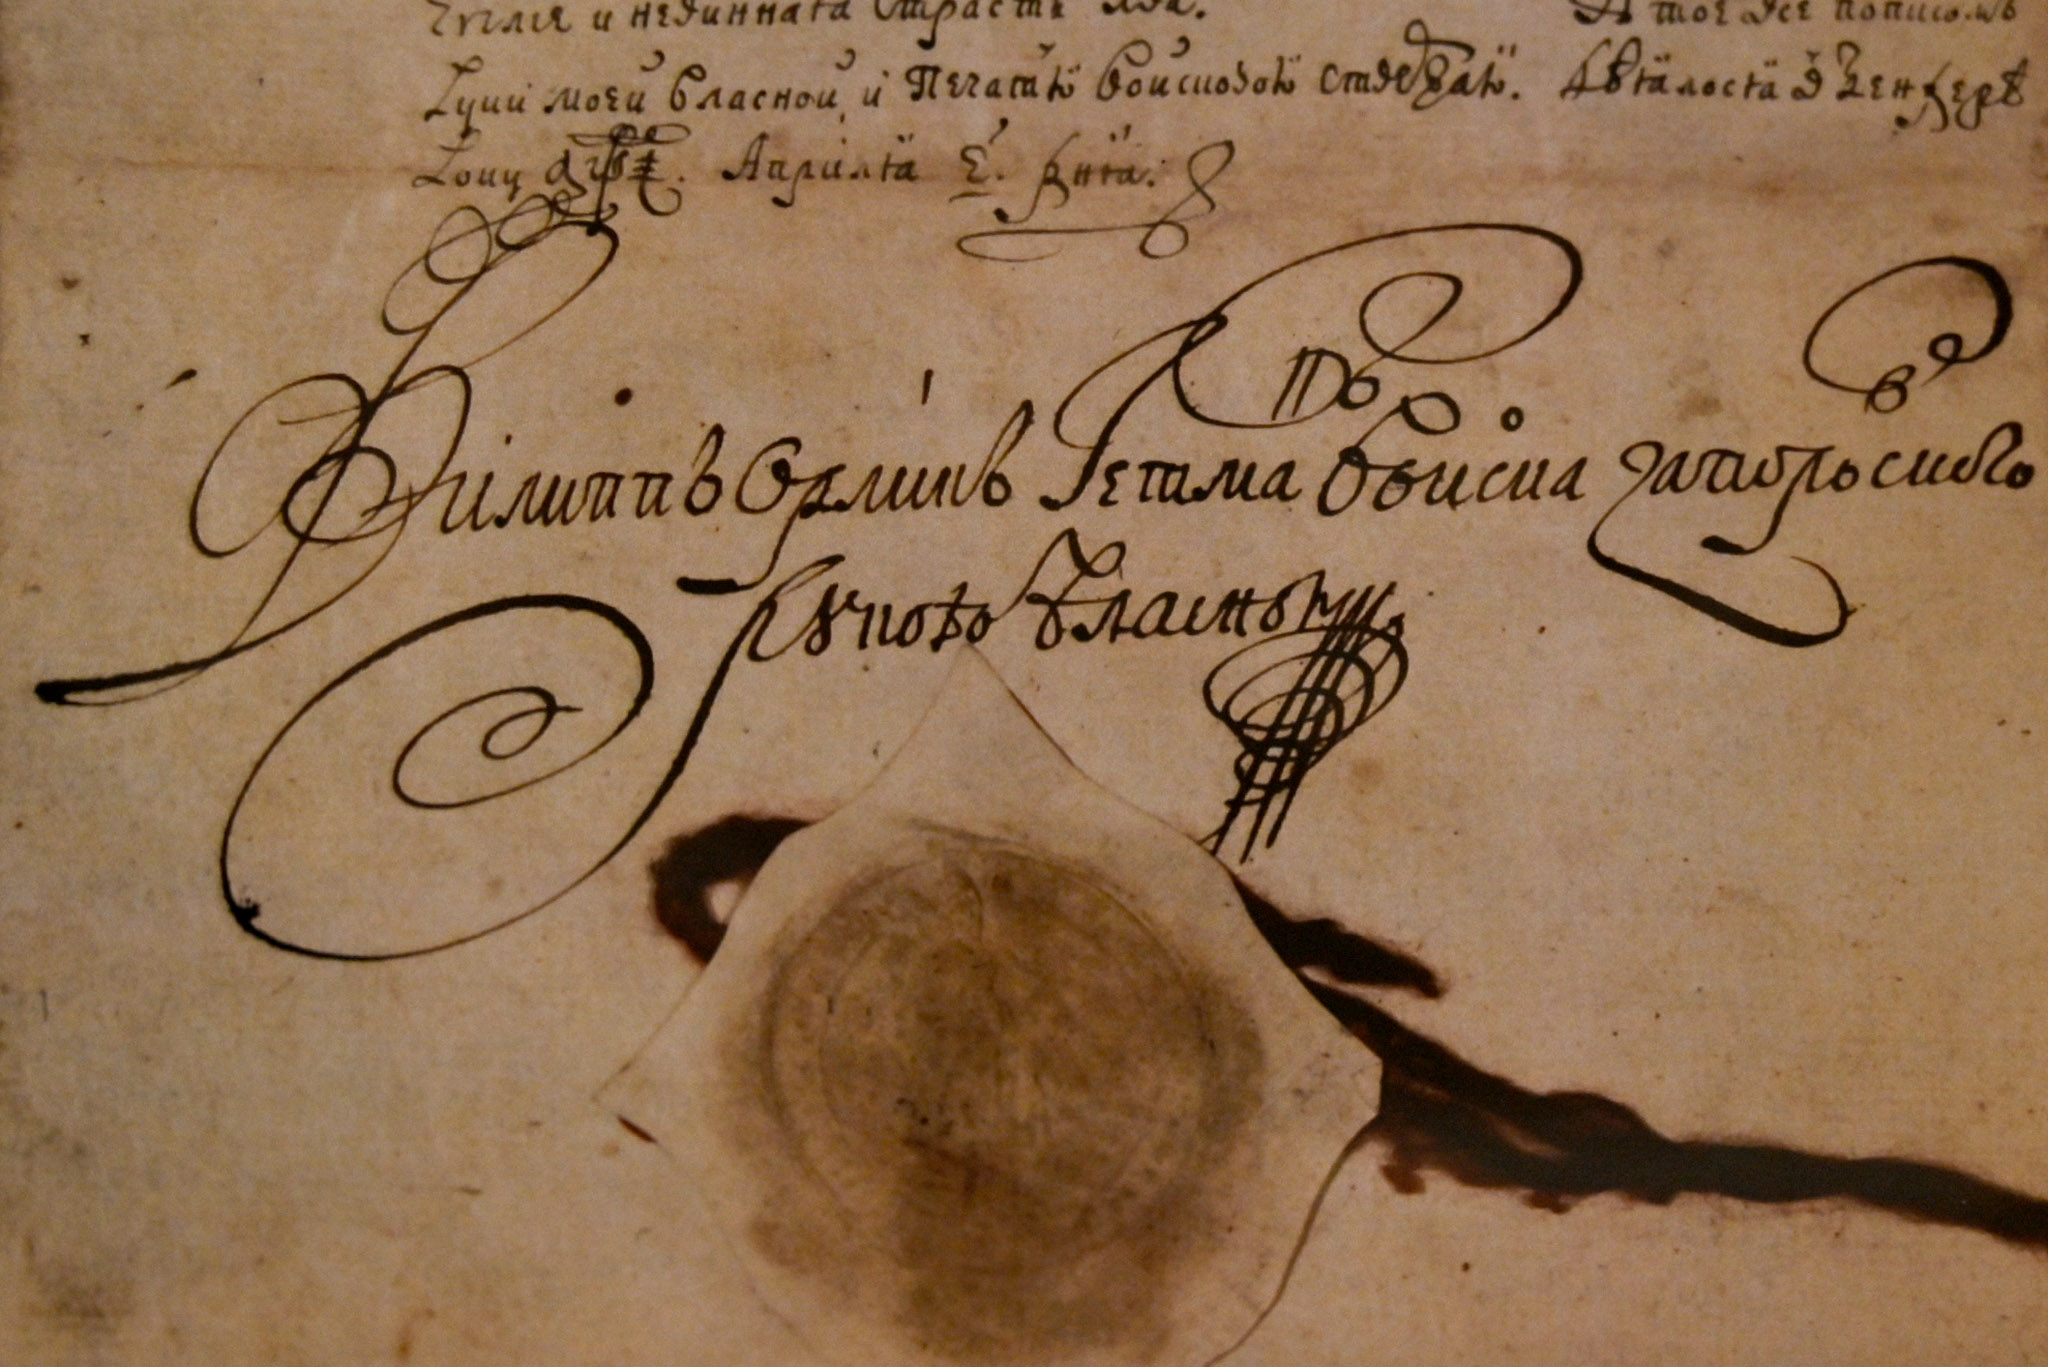 и невинната страсти Хва. А тое все пописомъ
Руки моей власной, и печатю войсковою ствержаю. Дѣялося в Бендерѣ
Року аѱі. Априля е҃. дня.
Филиппъ Орликъ Гетманъ Войска Запорозского
рукою власною